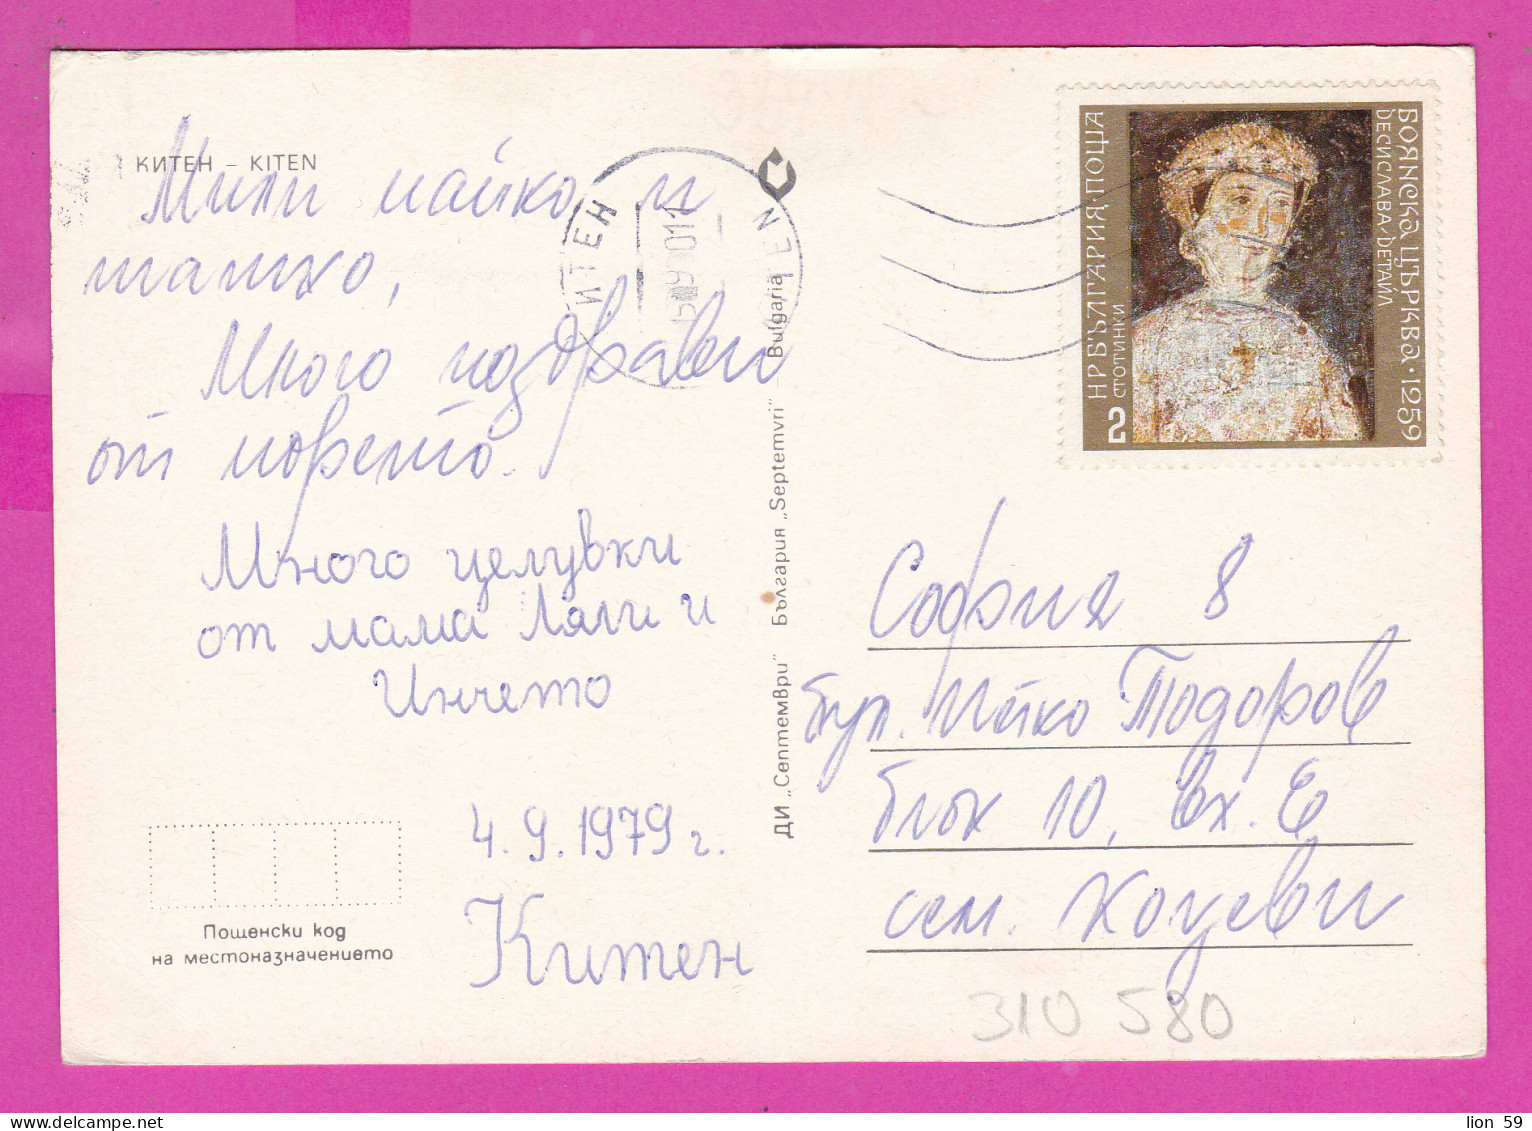 КИТЕН – KITEN
Мили майко и
татко,
Много поздрави
от морето.
Много целувки
от мама Ляли и
Инчето
4.9.1979 г.
Китен
Пощенски код
на местоназначението
ДИ „Септември" България „Septemvri" – Bulgaria
КИТЕН
KITEN
НР БЪЛГАРИЯ, ПОЩА
2 СТОТИНКИ
БОЯНСКА ЦЪРКВА · 1259
ДЕСИСЛАВА/ДЕТАЙЛ
София 8
бул. Пейко Тодоров
блок 10, вх. Е
сем. Коцеви
310 580
lion 59